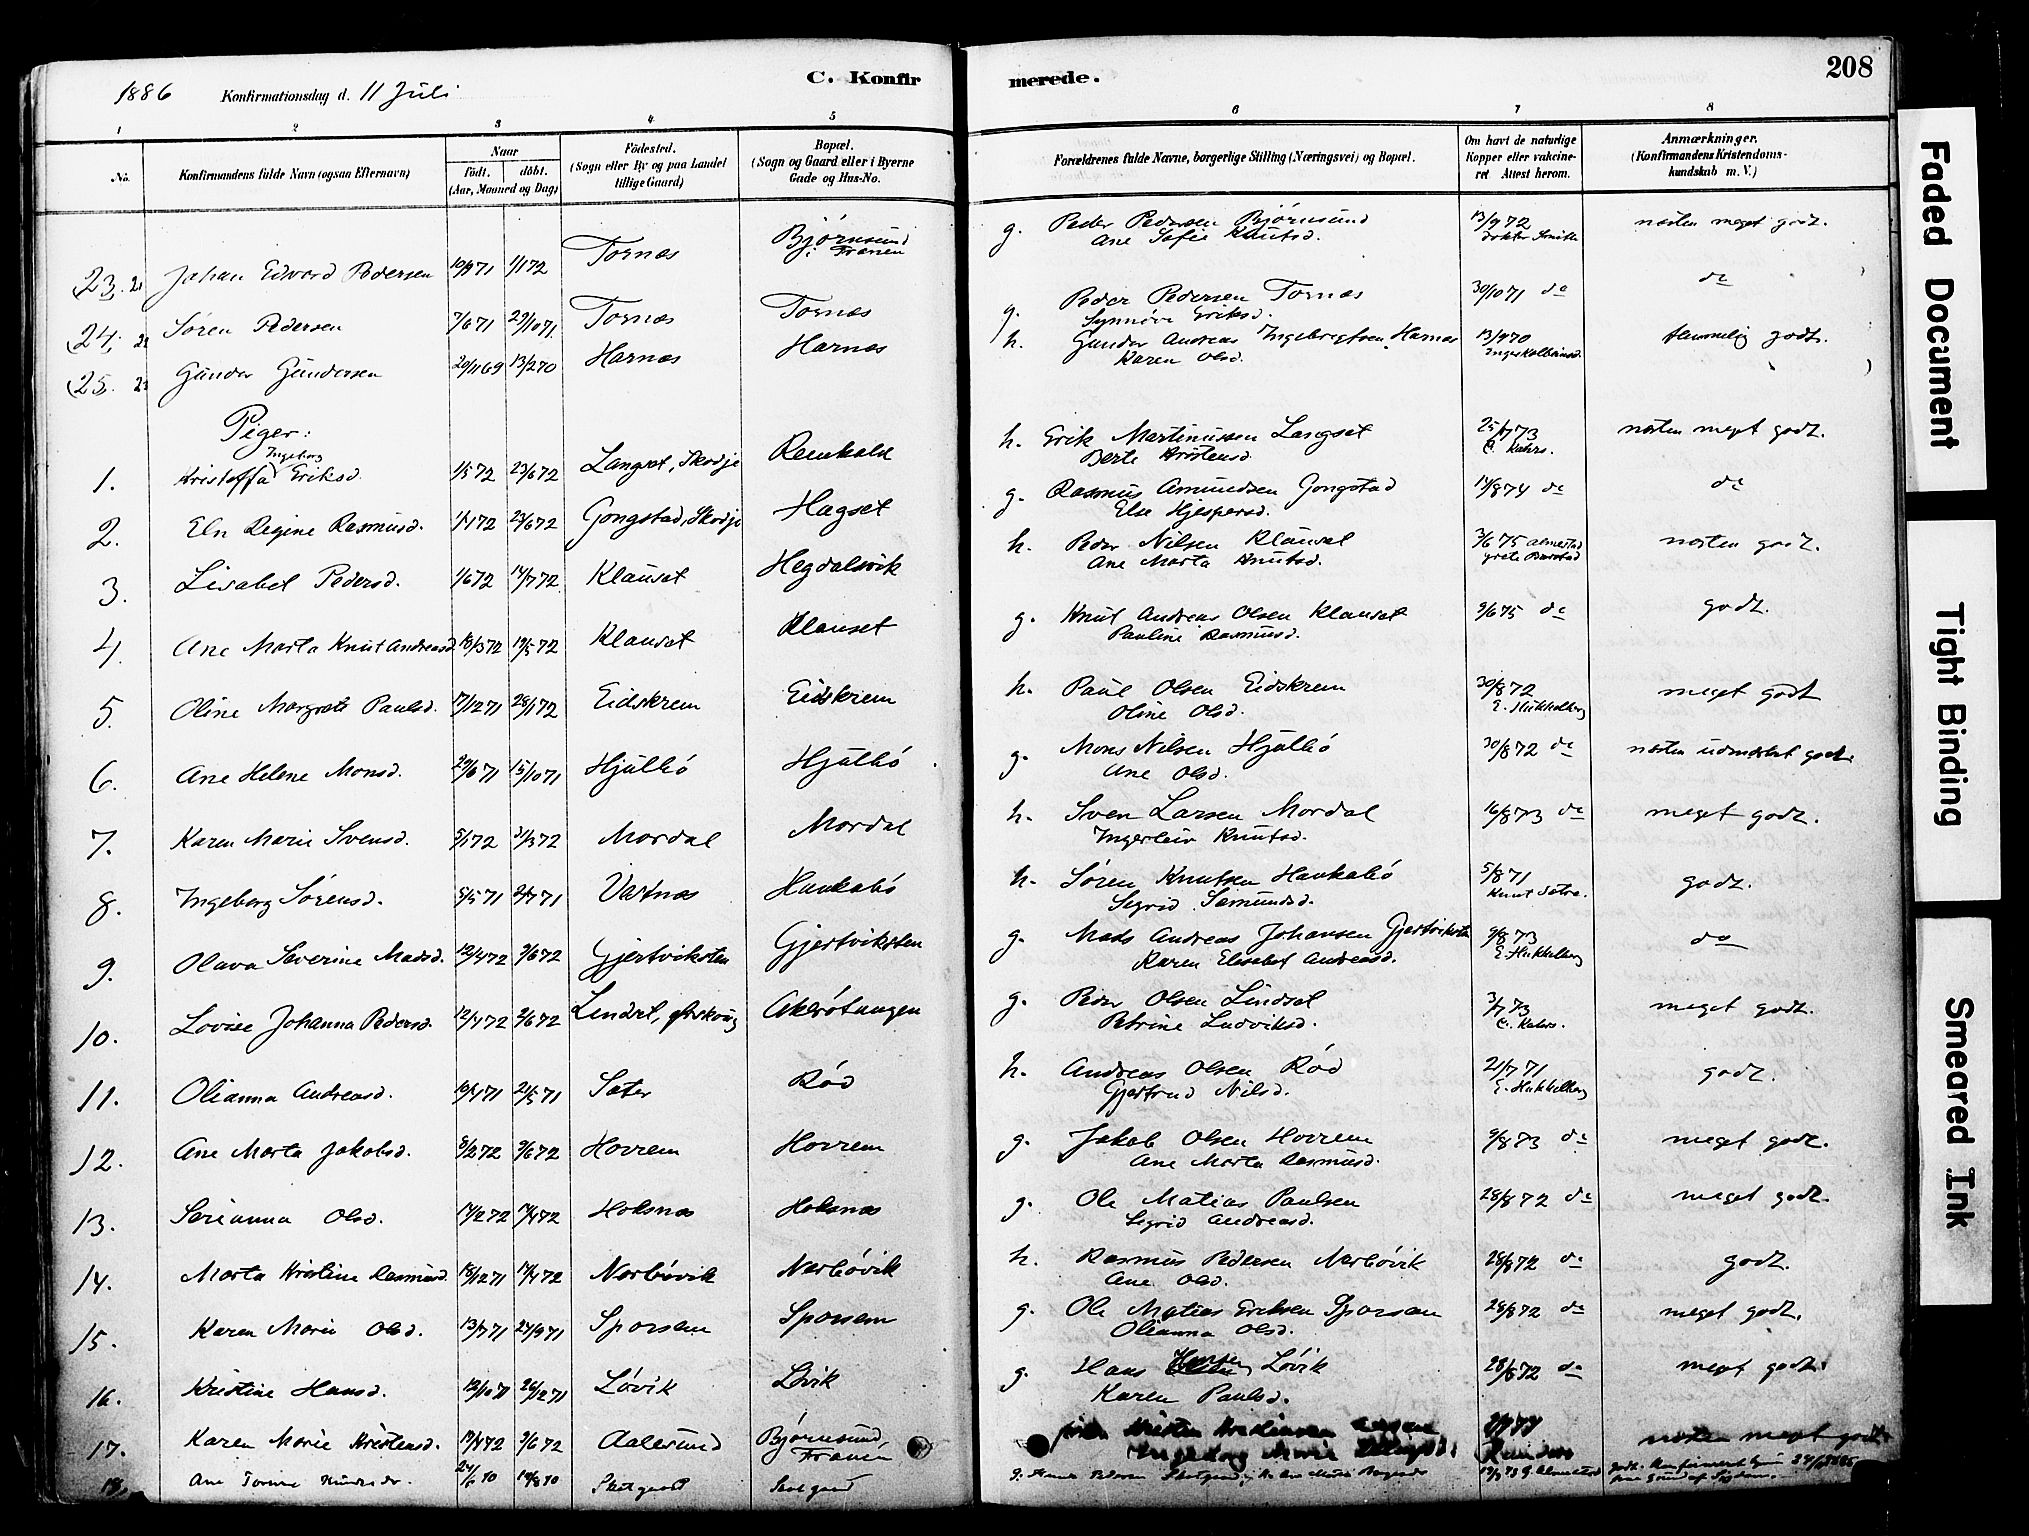 1886 Konfirmationsdag d. 11 Juli
C. Konfirmerede.
208
1 2 3 4 5 6 7 8
No.
Konfirmandens fulde Navn (ogsaa Efternavn)
Naar
født. døbt.
(Aar, Maaned og Dag)
Fødested.
(Sogn eller By og paa Landet
tillige Gaard)
Bopæl.
(Sogn og Gaard eller i Byerne
Gade og Hus-No.
Forældrenes fulde Navne, borgerlige Stilling (Næringsvei) og Bopæl.
Om havt de naturlige
Kopper eller vakcine-
ret Attest herom.
Anmærkninger,
(Konfirmandens Kristendoms-
kundskab m. V.)
23. 21 Johan Edvard Pedersen 10/9 71 1/1 72 Tornæs Bjørnsund Frænen g. Peder Pedersen Bjørnsund 13/9 72 næsten meget godt.
Ane Sofie Knutsd.
24. 22 Søren Pedersen 7/6 71 29/10 71 Tornæs Tornæs g. Peder Pedersen Tornæs 30/10 71 do do
Synnøve Eriksd.
25. 23 Gunder Gundersen 20/11 69 13/2 70 Harnæs Harnæs h. Gunder Andreas Ingebrigtsen Harnæs 13/9 70 temmelig godt.
Karen Olsd.
Piger:
1. Kristoffa Ingeborg Eriksd. 1/5 72 23/6 72 Langset, Skodje Remhold h. Erik Martinussen Langset 25/7 73 næsten meget godt.
Berte Kristensd. C. Kahrs.
2. Eln Regine Rasmusd. 1/1 72 23/6 72 Gongstad, Skodje Hagset g. Rasmus Amundsen Gongstad 14/8 74 do do
Else Hjespersd.
3. Lisabet Pedersd. 1/6 72 14/7 72 Klauset Hegdalsvik h. Peder Nilsen Klauset 3/6 75 næsten godt.
Ane Marta Knutsd.
4. Ane Marta Knut Andreasd 18/3 72 19/5 72 Klauset Klauset g. Knut Andreas Olsen Klauset 3/6 75 do godt.
Pauline Rasmusd.
5. Oline Margrete Paulsd. 17/12 71 28/1 72 Eidskrem Eidskrem h. Paul Olsen Eidskrem 30/8 72 meget godt
Oline Olsd. E. Hukkelberg
6. Ane Helene Monsd. 29/6 71 15/10 71 Hjullbø Hjullbø g. Mons Nilsen Hjullbø 30/8 72 do næsten udmærket godt.
Ane Olsd.
7. Karen Marie Svensd. 5/1 72 31/3 72 Mordal Mordal h. Sven Larsen Mordal 16/8 73 do meget godt.
Ingerleiv Knutsd.
8. Ingeborg Sørensd. 5/5 71 2/7 71 Vastnæs Haukabø h. Søren Knutsen Haukabø 5/8 71 godt.
Sigrid Samundsd.
9. Olava Severine Madsd. 12/4 72 9/6 72 Gjertviksten Gjertviksten g. Mads Andreas Johansen Gjertviksten 9/8 73 do
Karen Elisabet Andreasd. E. Hukkelberg
10. Lovise Johanna Pedersd. 12/4 72 2/6 72 Lindset, Ørskoug Akerøtangen g. Peder Olsen Lindset 3/7 73 meget godt.
Petrine Ludviksd. C. Kahrs.
11. Olianna Andreasd. 10/4 71 21/5 71 Sæter Rød h. Andreas Olsen Rød 21/7 71 godt.
Gjertrud Nilsd. E. Hukkelberg
12. Ane Marta Jakobsd. 8/2 72 9/6 72 Hovrem Hovrem g. Jakob Olsen Hovrem 9/8 73 do meget godt.
Ane Marta Rasmusd.
13. Serianna Olsd. 17/2 72 14/4 72 Holsnæs Holsnæs g. Ole Matias Paulsen 28/8 72 do meget godt.
Sigrid Andreasd.
14. Marta Kristine Rasmusd. 18/12 71 14/4 72 Nerbøvik Nerbøvik h. Rasmus Pedersen Nerbøvik 28/8 72 do godt.
Ane Olsd.
15. Karen Marie Olsd. 13/7 71 24/9 71 Sporsem Sporsem g. Ole Matias Eriksen Sporsem 28/8 72 do meget godt.
Olianna Olsd.
16. Kristine Hansd. 12/10 71 26/12 71 Løvik Løvik g. Hans Hansen Løvik 28/8 72 do meget godt.
Karen Paulsd.
17. Karen Marie Kristensd. 19/4 72 9/6 72 Aalesund Bjørnsund Frænen Kristen Kristiansen næsten meget godt.
Ingeborg Marie
18. Ane 24/6 70 14/8 70
Faded Document
Tight Binding
Smeared Ink